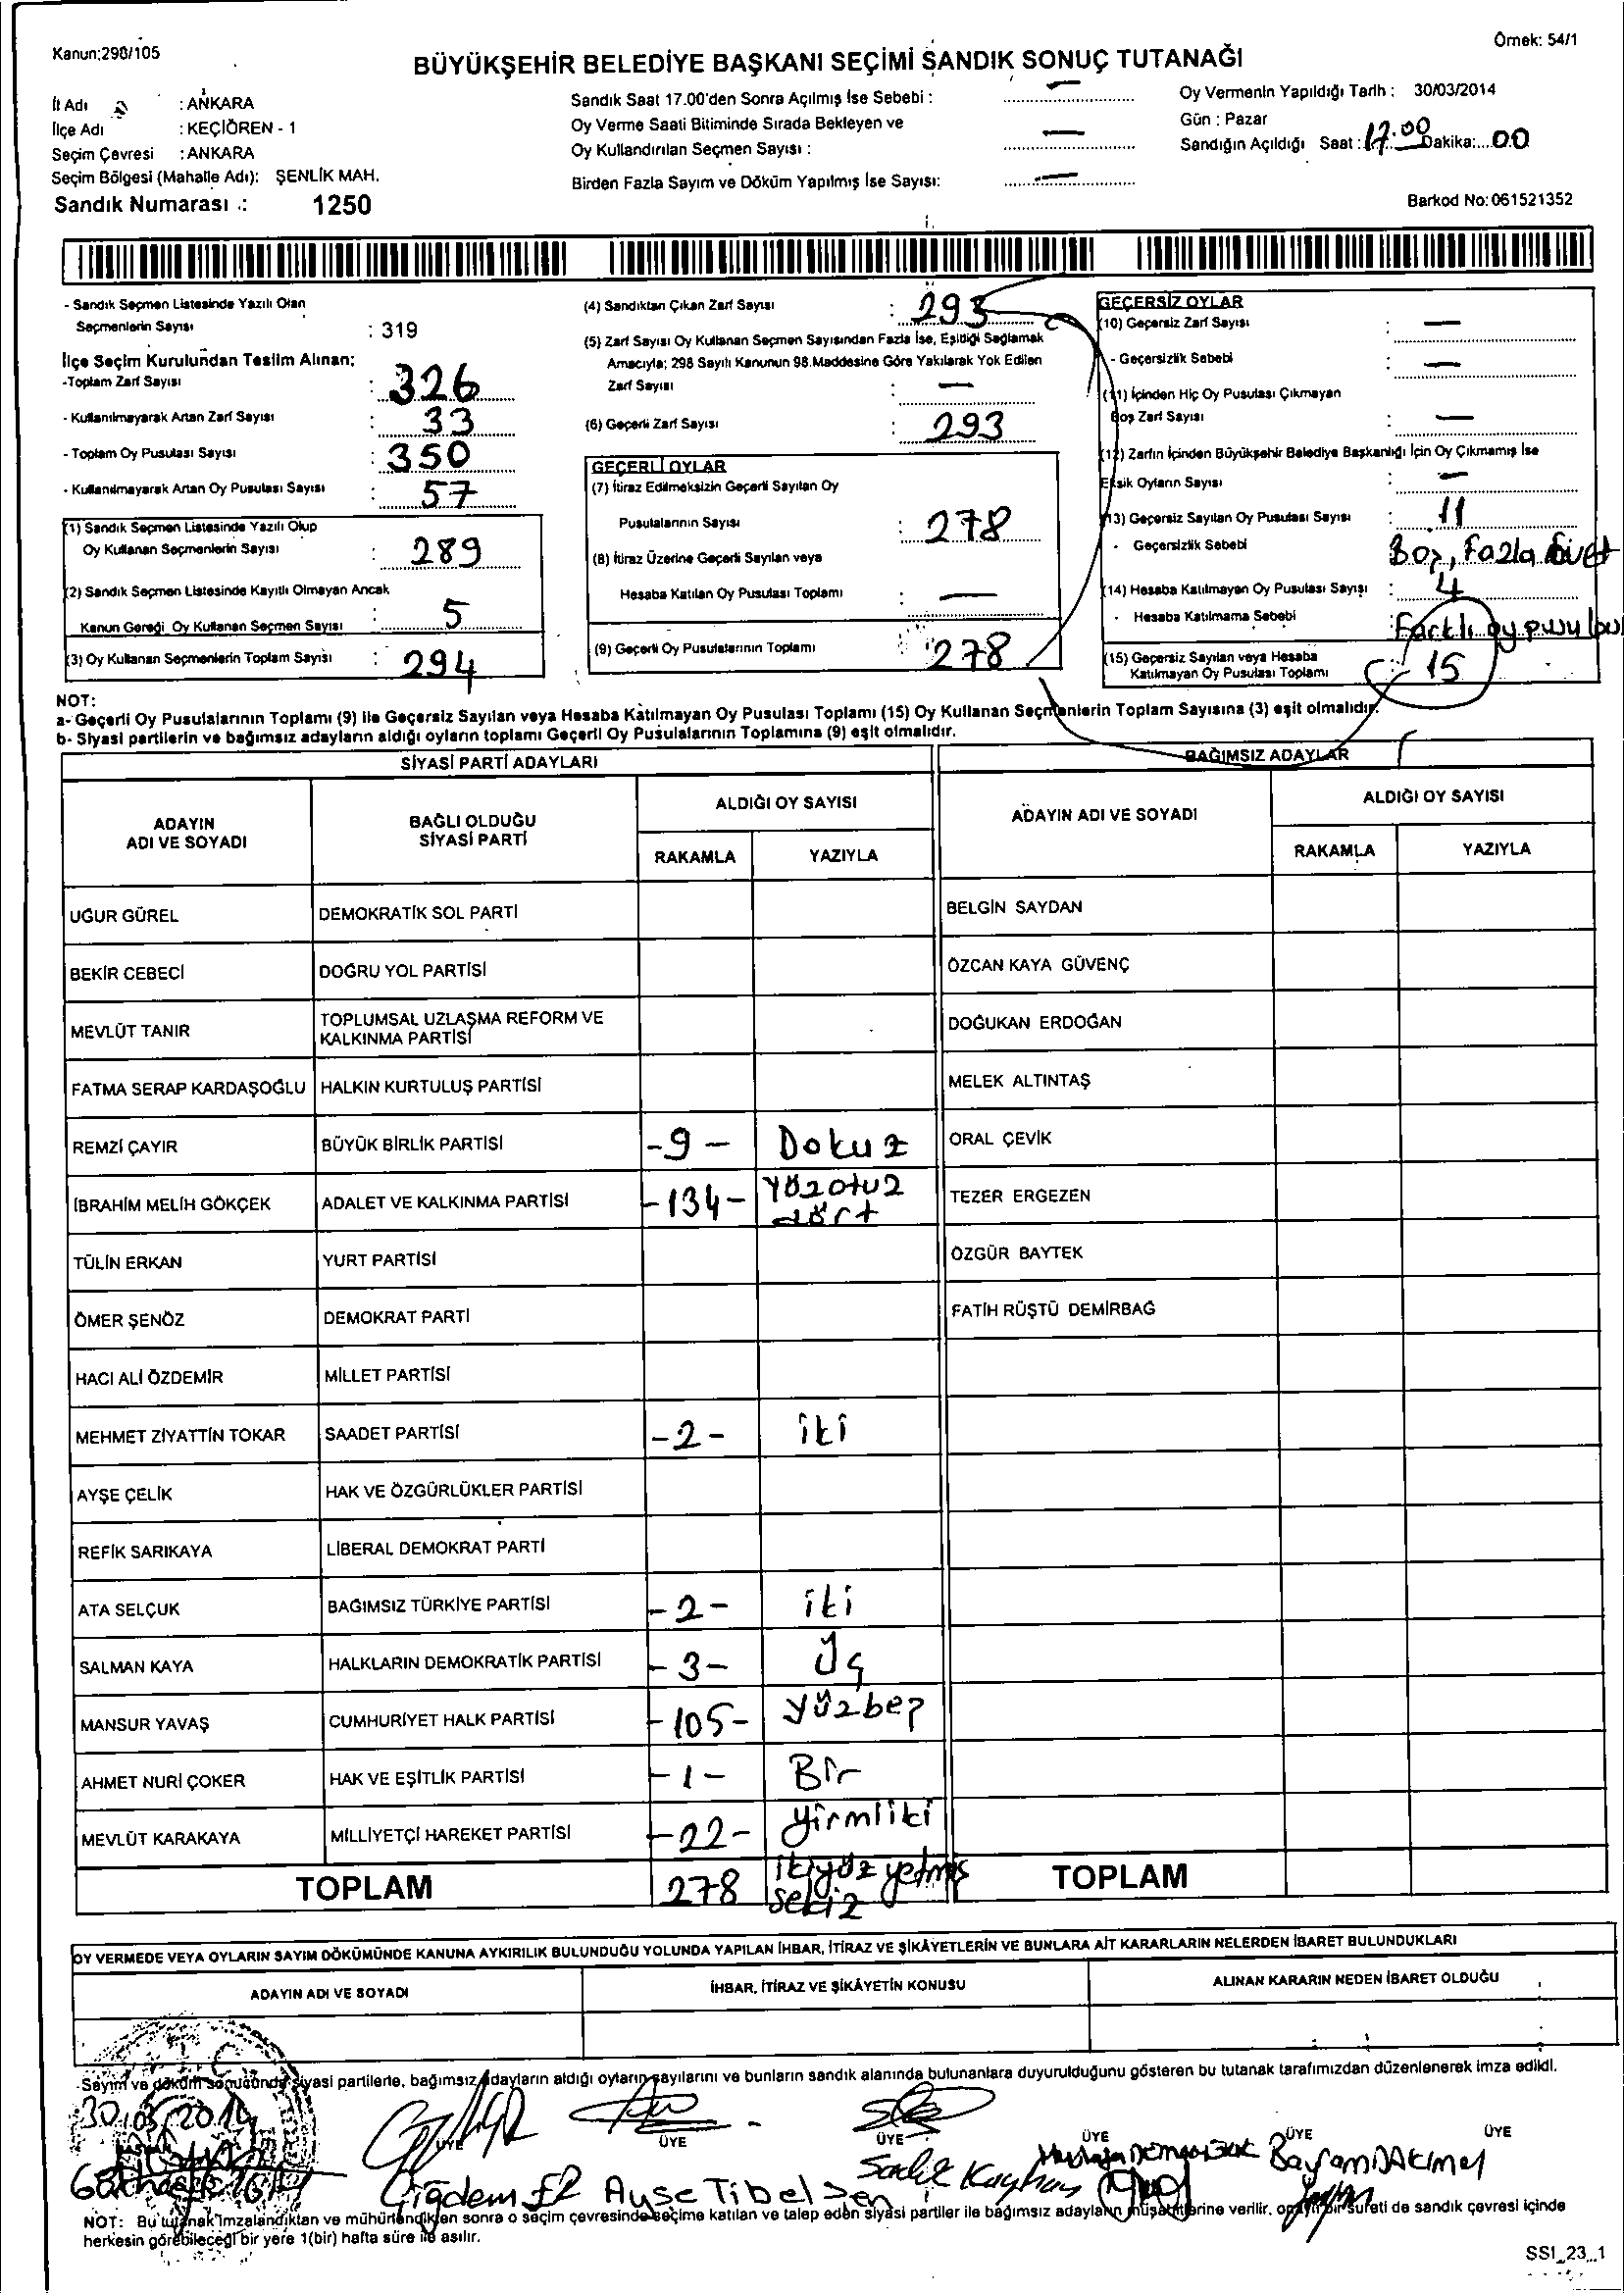 Kanun:298/105
Örnek: 54/1
BÜYÜKŞEHİR BELEDİYE BAŞKANI SEÇİMİ SANDIK SONUÇ TUTANAĞI
İl Adı : ANKARA
İlçe Adı : KEÇİÖREN - 1
Seçim Çevresi : ANKARA
Seçim Bölgesi (Mahalle Adı): ŞENLİK MAH.
Sandık Numarası : 1250
Sandık Saat 17.00'den Sonra Açılmış İse Sebebi : —
Oy Verme Saati Bitiminde Sırada Bekleyen ve
Oy Kullandırılan Seçmen Sayısı : —
Birden Fazla Sayım ve Döküm Yapılmış İse Sayısı: —
Oy Vermenin Yapıldığı Tarih : 30/03/2014
Gün : Pazar
Sandığın Açıldığı Saat : 17.00 Dakika:...00
Barkod No: 061521352
- Sandık Seçmen Listesinde Yazılı Olan
Seçmenlerin Sayısı : 319
İlçe Seçim Kurulundan Teslim Alınan:
-Toplam Zarf Sayısı : 326
- Kullanılmayarak Artan Zarf Sayısı : 33
- Toplam Oy Pusulası Sayısı : 350
- Kullanılmayarak Artan Oy Pusulası Sayısı : 57
(1) Sandık Seçmen Listesinde Yazılı Olup
Oy Kullanan Seçmenlerin Sayısı : 289
(2) Sandık Seçmen Listesinde Kayıtlı Olmayan Ancak
Kanun Gereği Oy Kullanan Seçmen Sayısı : 5
(3) Oy Kullanan Seçmenlerin Toplam Sayısı : 294
(4) Sandıktan Çıkan Zarf Sayısı : 293
(5) Zarf Sayısı Oy Kullanan Seçmen Sayısından Fazla İse, Eşitliği Sağlamak
Amacıyla; 298 Sayılı Kanunun 98.Maddesine Göre Yakılarak Yok Edilen
Zarf Sayısı : —
(6) Geçerli Zarf Sayısı : 293
GEÇERLİ OYLAR
(7) İtiraz Edilmeksizin Geçerli Sayılan Oy
Pusulalarının Sayısı : 278
(8) İtiraz Üzerine Geçerli Sayılan veya
Hesaba Katılan Oy Pusulası Toplamı : —
(9) Geçerli Oy Pusulalarının Toplamı : 278
GEÇERSİZ OYLAR
(10) Geçersiz Zarf Sayısı : —
- Geçersizlik Sebebi : —
(11) İçinden Hiç Oy Pusulası Çıkmayan
Boş Zarf Sayısı : —
(12) Zarfın İçinden Büyükşehir Belediye Başkanlığı İçin Oy Çıkmamış İse
Eksik Oyların Sayısı : —
(13) Geçersiz Sayılan Oy Pusulası Sayısı : 11
- Geçersizlik Sebebi Boş, Fazla Evet
(14) Hesaba Katılmayan Oy Pusulası Sayısı : 4
- Hesaba Katılmama Sebebi : Farklı oy
(15) Geçersiz Sayılan veya Hesaba
Katılmayan Oy Pusulası Toplamı : 15
NOT:
a- Geçerli Oy Pusulalarının Toplamı (9) ile Geçersiz Sayılan veya Hesaba Katılmayan Oy Pusulası Toplamı (15) Oy Kullanan Seçmenlerin Toplam Sayısına (3) eşit olmalıdır.
b- Siyasi partilerin ve bağımsız adayların aldığı oyların toplamı Geçerli Oy Pusulalarının Toplamına (9) eşit olmalıdır.
SİYASİ PARTİ ADAYLARI
BAĞIMSIZ ADAYLAR
ADAYIN
ADI VE SOYADI
BAĞLI OLDUĞU
SİYASİ PARTİ
ALDIĞI OY SAYISI
RAKAMLA YAZIYLA
ADAYIN ADI VE SOYADI
ALDIĞI OY SAYISI
RAKAMLA YAZIYLA
UĞUR GÜREL DEMOKRATİK SOL PARTİ BELGİN SAYDAN
BEKİR CEBECİ DOĞRU YOL PARTİSİ ÖZCAN KAYA GÜVENÇ
MEVLÜT TANIR TOPLUMSAL UZLAŞMA REFORM VE
KALKINMA PARTİSİ DOĞUKAN ERDOĞAN
FATMA SERAP KARDAŞOĞLU HALKIN KURTULUŞ PARTİSİ MELEK ALTINTAŞ
REMZİ ÇAYIR BÜYÜK BİRLİK PARTİSİ -9- Dokuz ORAL ÇEVİK
İBRAHİM MELİH GÖKÇEK ADALET VE KALKINMA PARTİSİ -134- Yüzotuz
dört TEZER ERGEZEN
TÜLİN ERKAN YURT PARTİSİ ÖZGÜR BAYTEK
ÖMER ŞENÖZ DEMOKRAT PARTİ FATİH RÜŞTÜ DEMİRBAĞ
HACI ALİ ÖZDEMİR MİLLET PARTİSİ
MEHMET ZİYATTİN TOKAR SAADET PARTİSİ -2- iki
AYŞE ÇELİK HAK VE ÖZGÜRLÜKLER PARTİSİ
REFİK SARIKAYA LİBERAL DEMOKRAT PARTİ
ATA SELÇUK BAĞIMSIZ TÜRKİYE PARTİSİ -2- iki
SALMAN KAYA HALKLARIN DEMOKRATİK PARTİSİ -3- Üç
MANSUR YAVAŞ CUMHURİYET HALK PARTİSİ -105- yüzbeş
AHMET NURİ ÇOKER HAK VE EŞİTLİK PARTİSİ -1- Bir
MEVLÜT KARAKAYA MİLLİYETÇİ HAREKET PARTİSİ -22- yirmiiki
TOPLAM 278 ikiyüz yetmiş
sekiz TOPLAM
OY VERMEDE VEYA OYLARIN SAYIM DÖKÜMÜNDE KANUNA AYKIRILIK BULUNDUĞU YOLUNDA YAPILAN İHBAR, İTİRAZ VE ŞİKÂYETLERİN VE BUNLARA AİT KARARLARIN NELERDEN İBARET BULUNDUKLARI
ADAYIN ADI VE SOYADI İHBAR, İTİRAZ VE ŞİKÂYETİN KONUSU ALINAN KARARIN NEDEN İBARET OLDUĞU
Sayım ve döküm sonucunda siyasi partilerle, bağımsız adayların aldığı oyların sayılarını ve bunların sandık alanında bulunanlara duyurulduğunu gösteren bu tutanak tarafımızdan düzenlenerek imza edildi.
30.03.2014
ÜYE ÜYE ÜYE ÜYE ÜYE ÜYE
Çiğdem Ayşe Tibel Şen Sadık Kayhan Bayram
NOT: Bu tutanak imzalandıktan ve mühürlendikten sonra o seçim çevresinde seçime katılan ve talep eden siyasi partiler ile bağımsız adayların müşahitlerine verilir, onaylı bir sureti de sandık çevresi içinde
herkesin görebileceği bir yere 1(bir) hafta süre ile asılır.
SSI_23_1